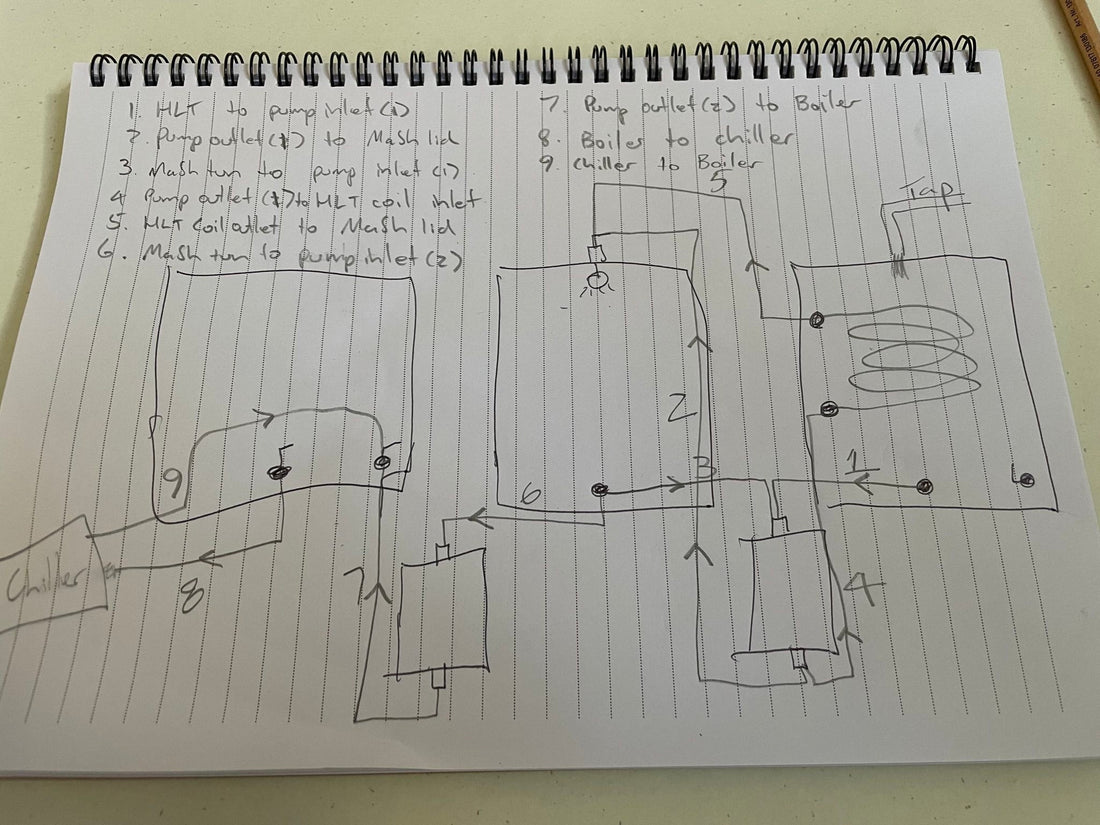 1. HLT to pump inlet (1)
2. Pump outlet (1) to Mash lid
3. Mash tun to pump inlet (1)
4 Pump outlet (1) to HLT coil inlet
5. HLT Coil outlet to Mash lid
6. Mash tun to pump inlet (2)
7. Pump outlet (2) to Boiler
8. Boiler to chiller
9. Chiller to Boiler
5
Tap
2
9
6
3
1
Chiller
8
7
4